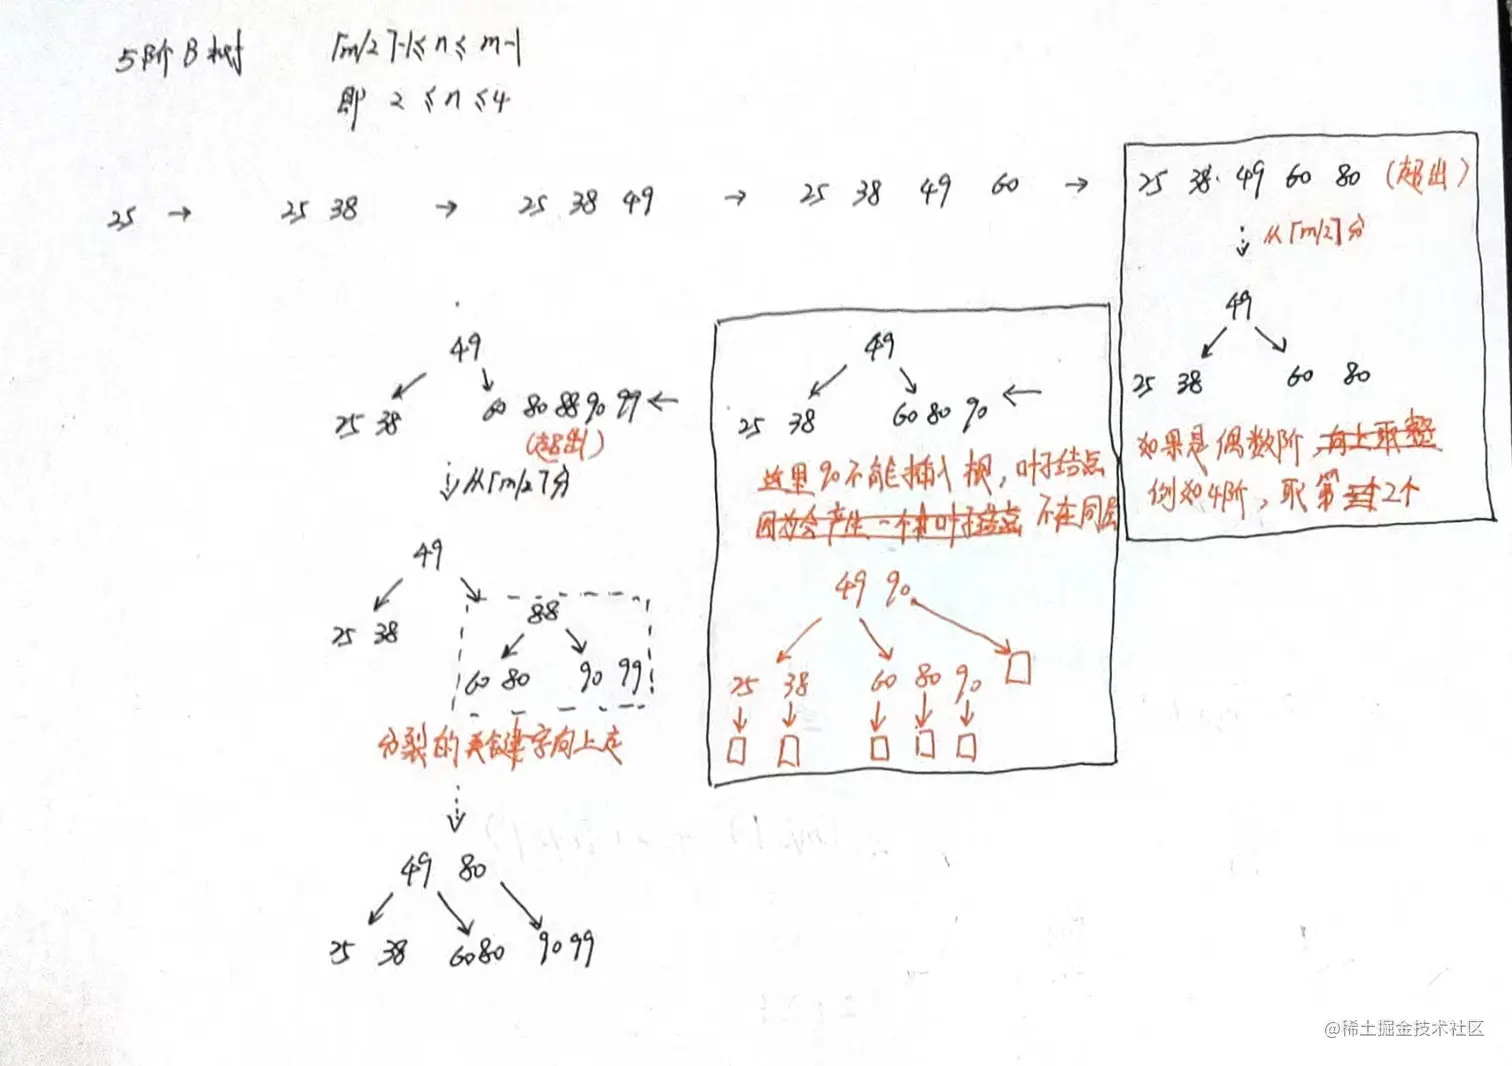 5阶B树 ⌈m/2⌉-1≤n≤m-1
即 2≤n≤4
25 → 25 38 → 25 38 49 → 25 38 49 60 →
25 38 49 60 80 (超出)
从⌈m/2⌉分
49
25 38 60 80
如果是偶数阶,向上取整
例如4阶,取第2个
49
25 38 60 80 90 ←
这里90不能插入根,叶子结点
因为会产生一个叶子结点 不在同层
49 90
25 38 60 80 90
49
25 38 60 80 88 90 99 ←
(超出)
从⌈m/2⌉分
49
25 38 88
60 80 90 99
分裂的关键字向上走
49 80
25 38 60 80 90 99
@稀土掘金技术社区